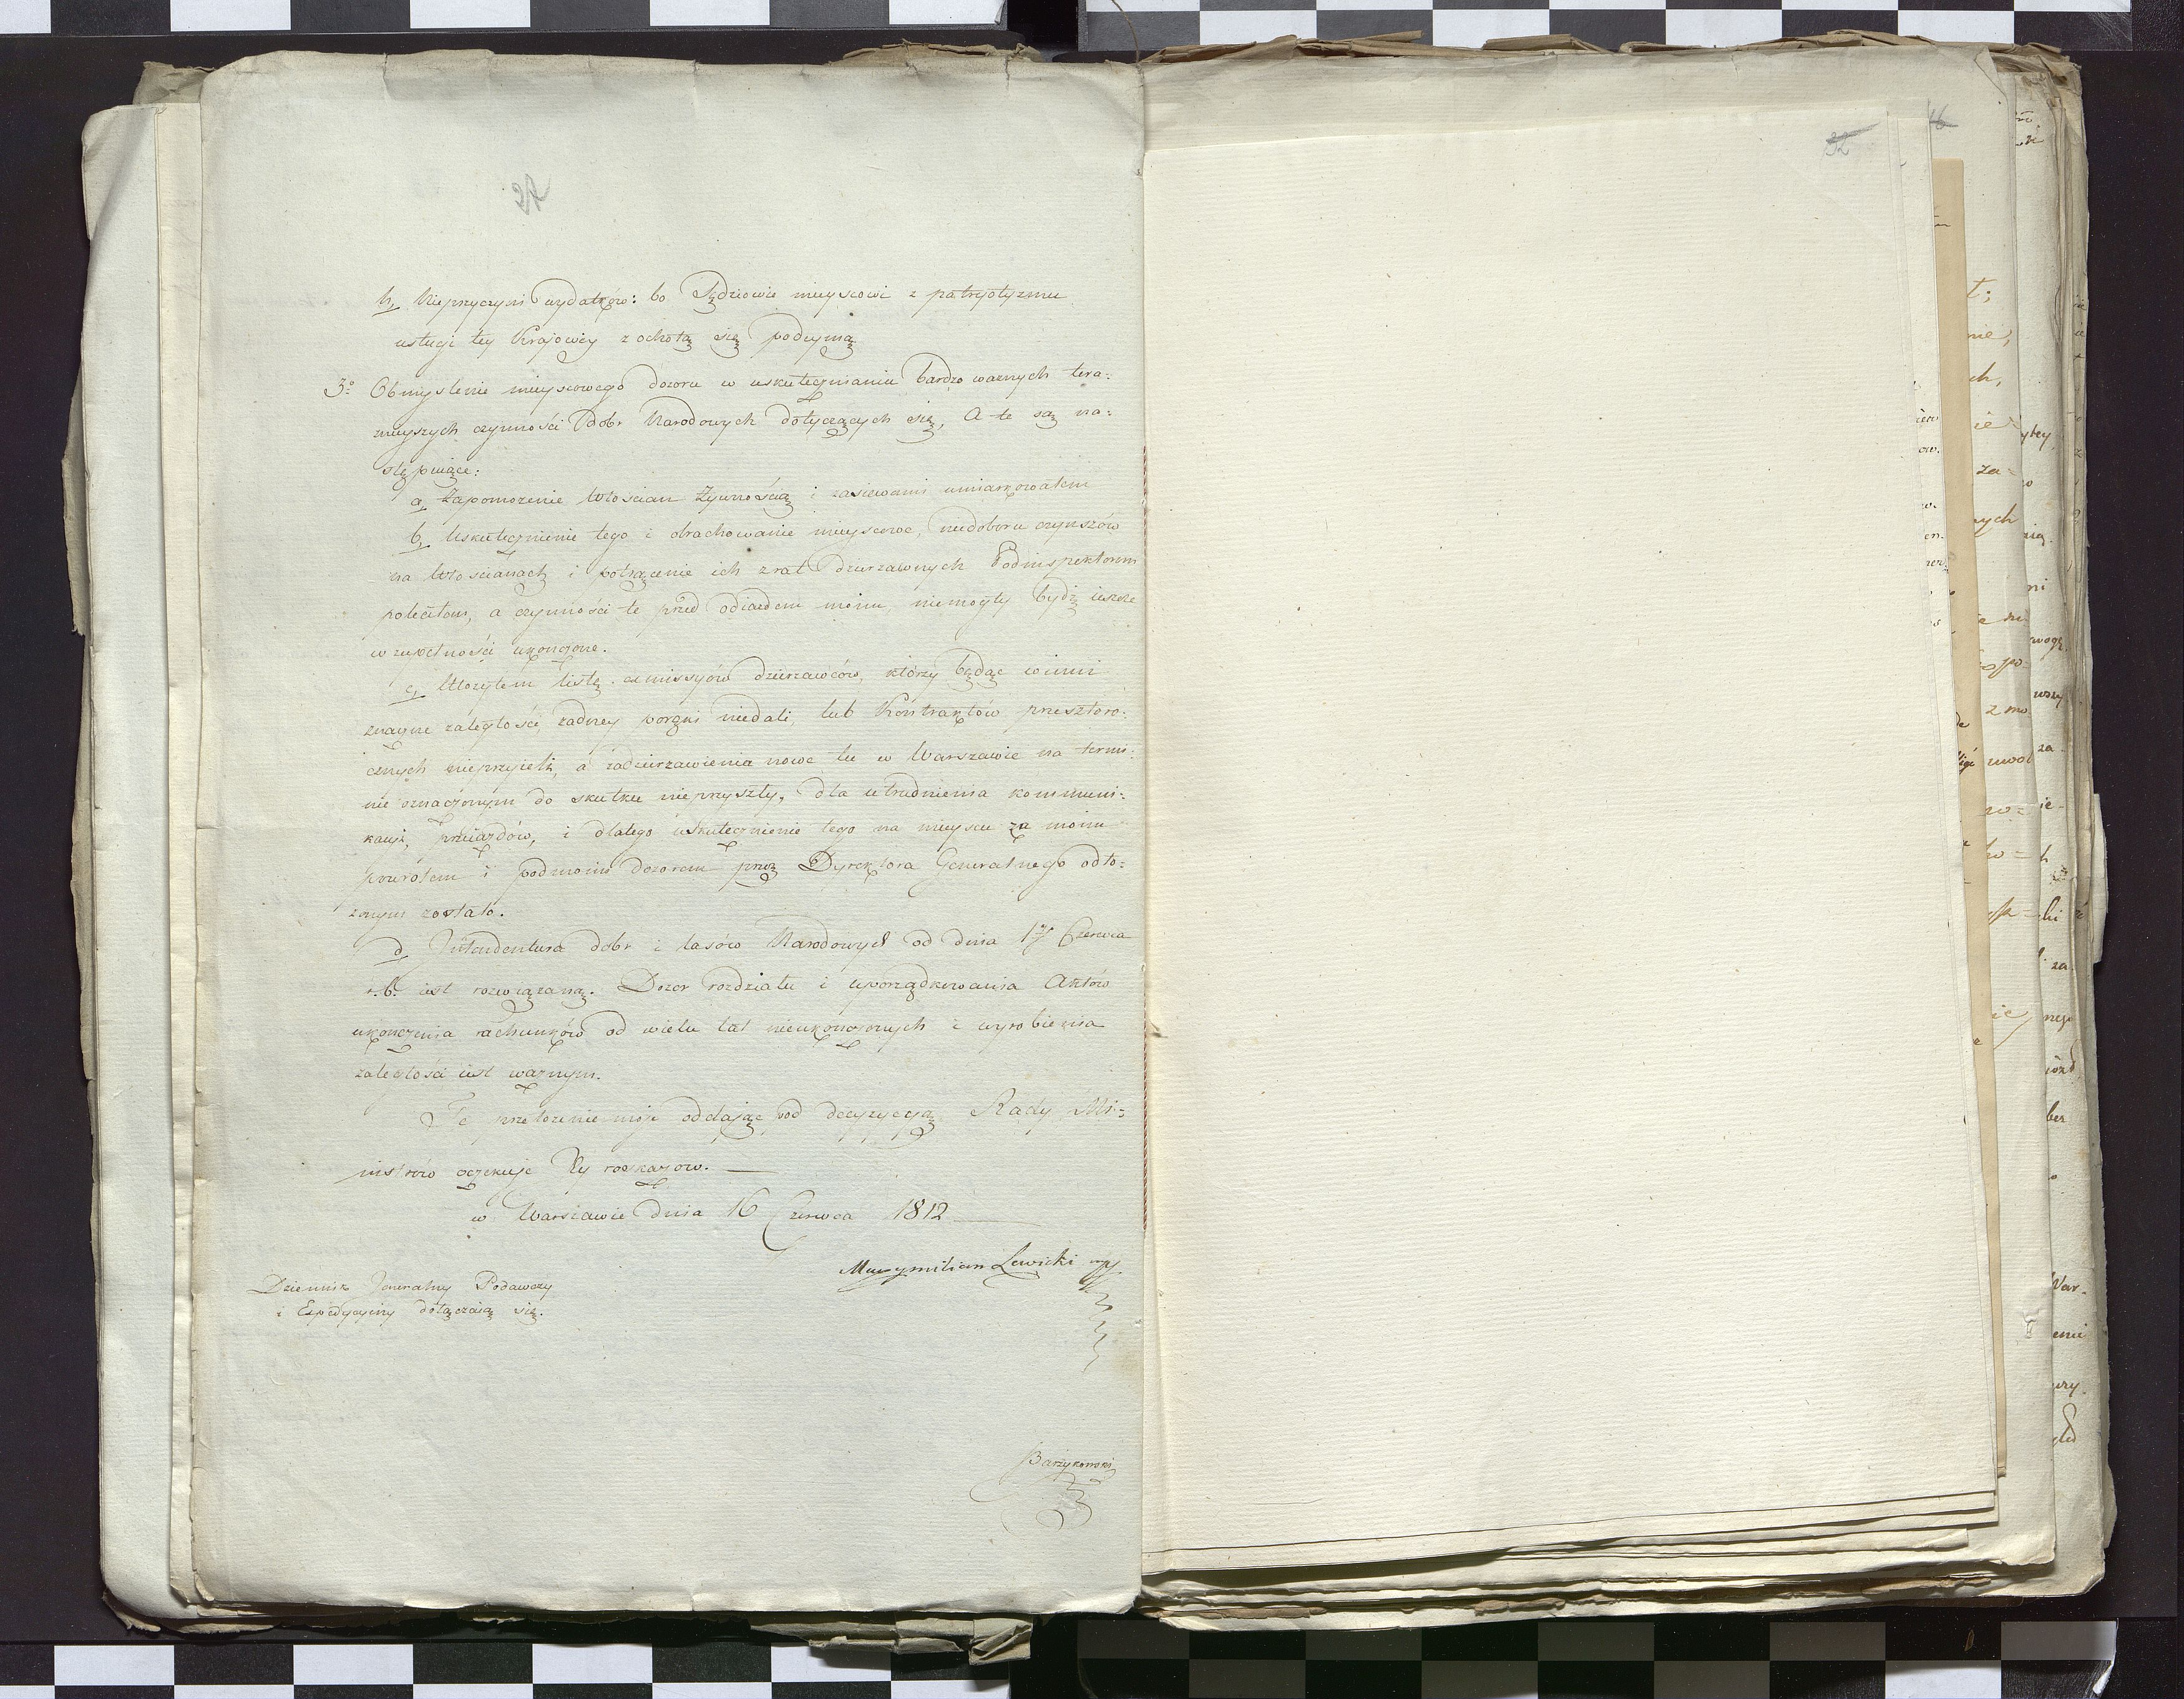 27
h, Nieprzyczyni wydatków: bo Sędziowie mieyscowi z patryotyzmu
usługi tey Krajowey z ochotą się podeymą
3o Obmyslenie mieyscowego dozoru w uskutecznianiu bardzo waznych tera:
znieyszych czynności Dobr Narodowych dotyczących się, A te są na:
stępuiące:
a, Zapomożenie Włoscian Zywnością i zasiewami umiarkowałem
b, Uskutecznienie tego i obrachowanie mieyscowe, niedoboru czynszów
na Włoscianach i potrącenie ich z rat Dzierzawnych Podinspektorom
poleciłem, a czynności te przed odiazdem moim, niemogły bydz ieszcze
w zupełności ukonczone.
c, Ułozyłem listę exmissyów dzierzawców, którzy będąc winni
znaczne zaległości, zadney poręki niedali, lub Kontraktów przeszłoro:
cznych nieprzyieli, a zadzierzawienia nowe tu w Warszawie na termi:
nie oznaczonym do skutku nieprzyszły, dla utrudnienia kommuni:
kacyi, przeiazdów, i dlatego uskutecznienie tego na mieyscu za moim
powrotem i podmoim dozorem przez Dyrektora Generalnego odło:
zonym zostało.
d, Intendentura dobr i lasów Narodowych od dnia 17 Czerwca
r. b. iest rozwiązaną. Dozor rozdziału i uporządkowania Aktów
ukonczenia rachunków od wielu lat nieukonczonych i wyrobienia
zaległości iest waznym.
Te przełozenie moje oddając pod decyzycyą Rady Mi:
nistrów oczekuje Jey rozkazow.
w Warszawie dnia 16 Czerwca 1812
Maxymilian Lewicki mp
Dziennik Jeneralny Podawczy
i Expedycyiny dołączaią się.
Barzykowski
32